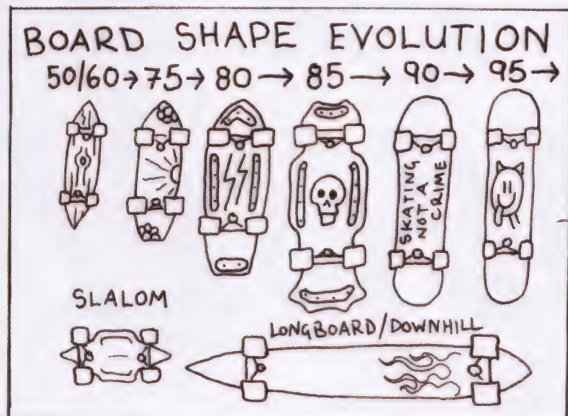 BOARD SHAPE EVOLUTION
50/60→75→80→85→90→95→
SKATING
NOT A
CRIME
SLALOM
LONGBOARD/DOWNHILL